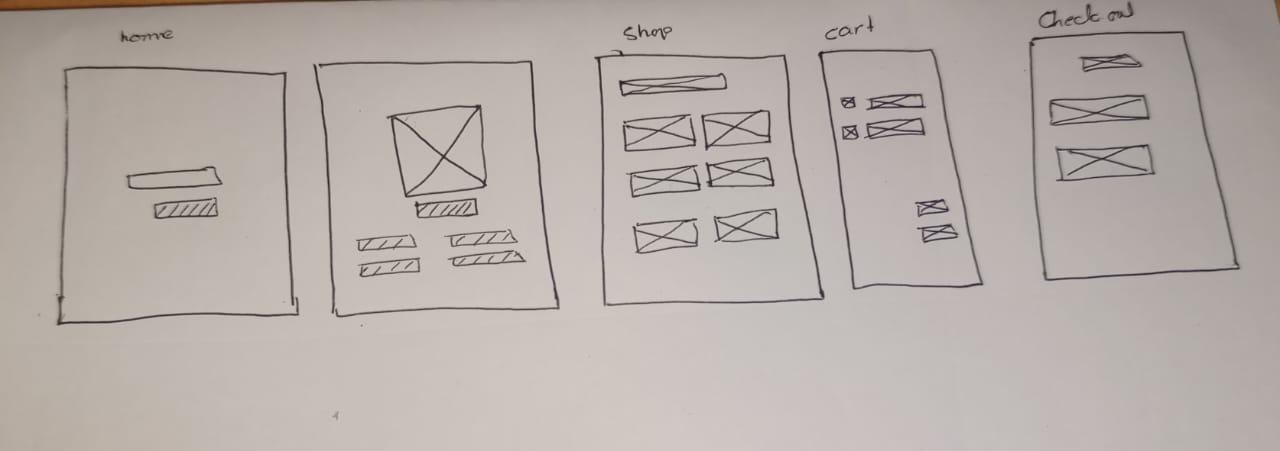 home
Shop
cart
Check out